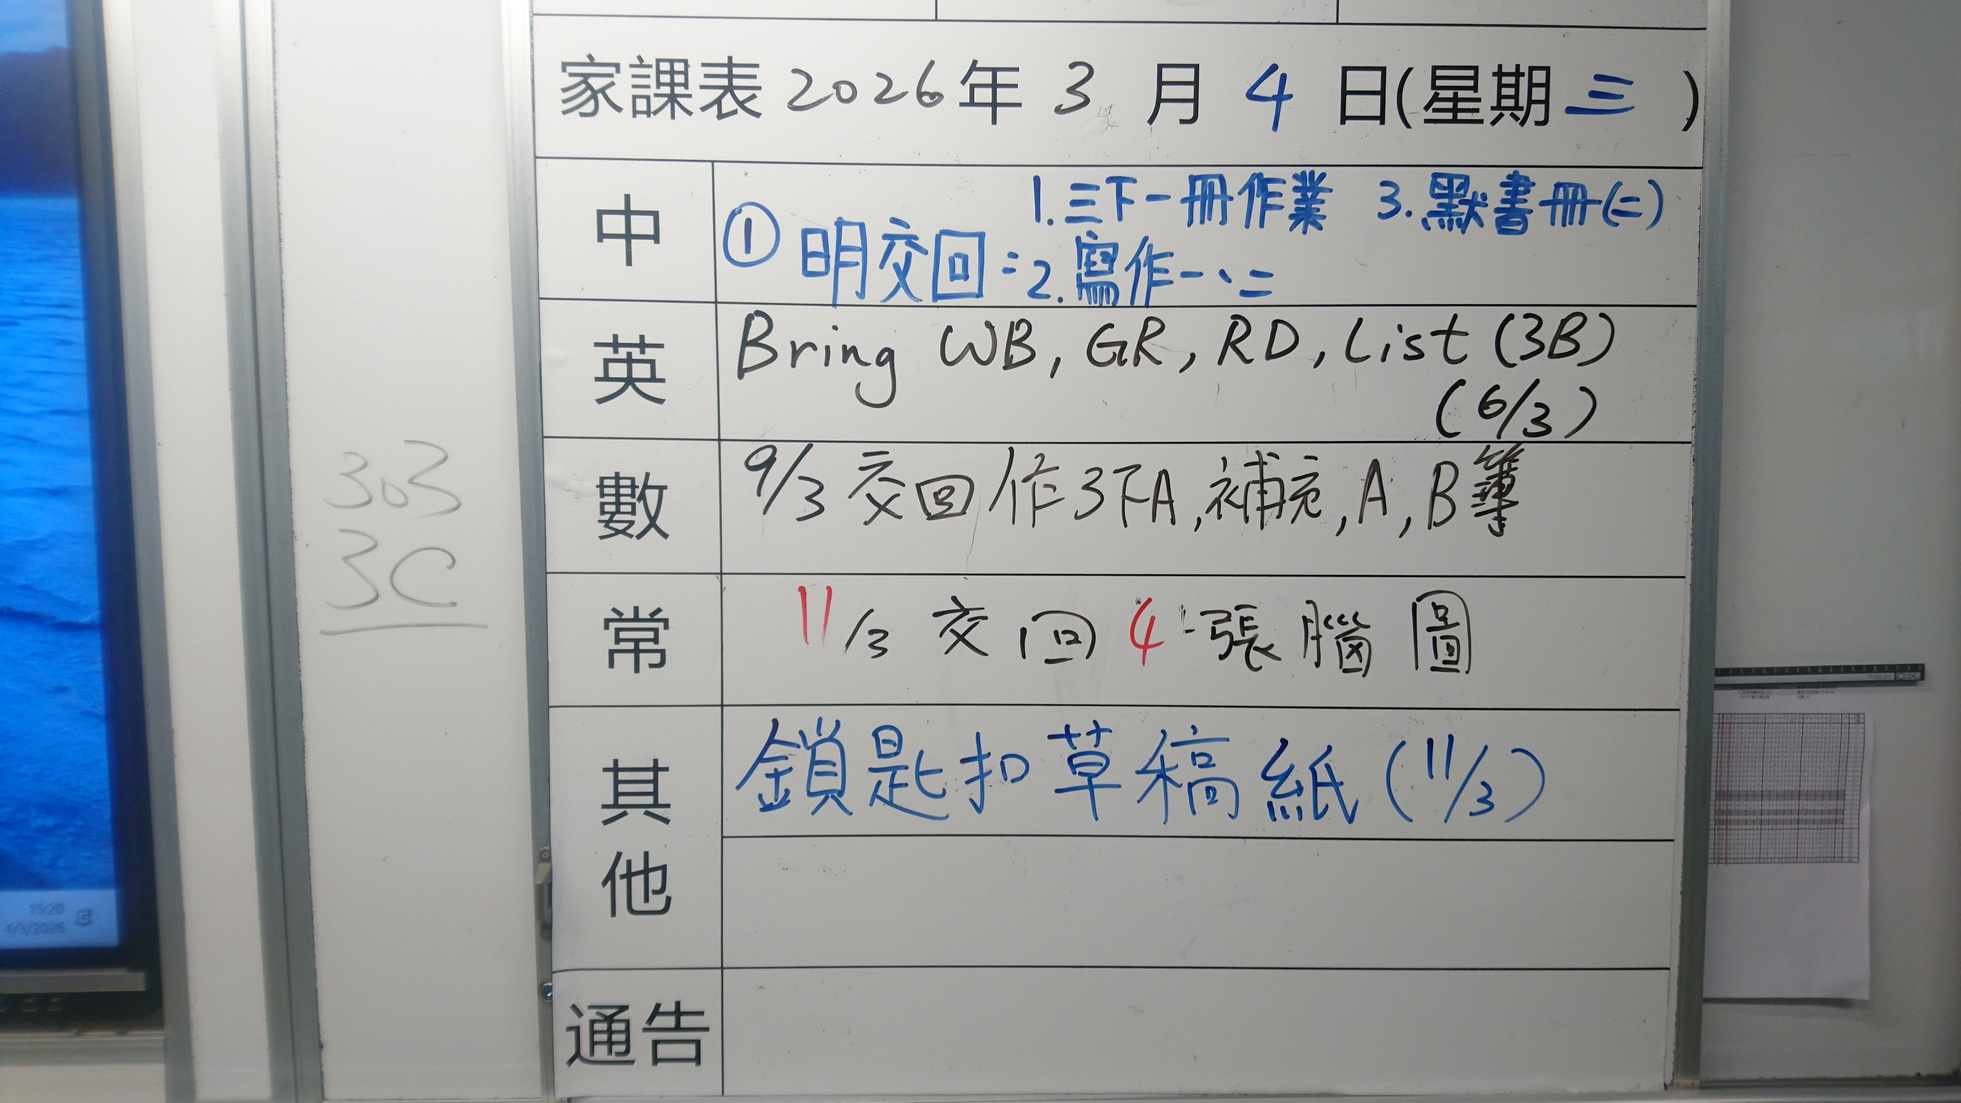 家課表 2026 年 3 月 4 日(星期 三 )
中
1. 三下一冊作業 3. 默書冊(二)
① 明交回: 2. 寫作一、二
英
Bring WB, GR, RD, List (3B)
(6/3)
數
9/3 交回作3下A, 補充, A, B簿
常
11/3 交回 4 張腦圖
其他
鎖匙扣草稿紙 (11/3)
通告
303
3C
15:20
4/3/2026